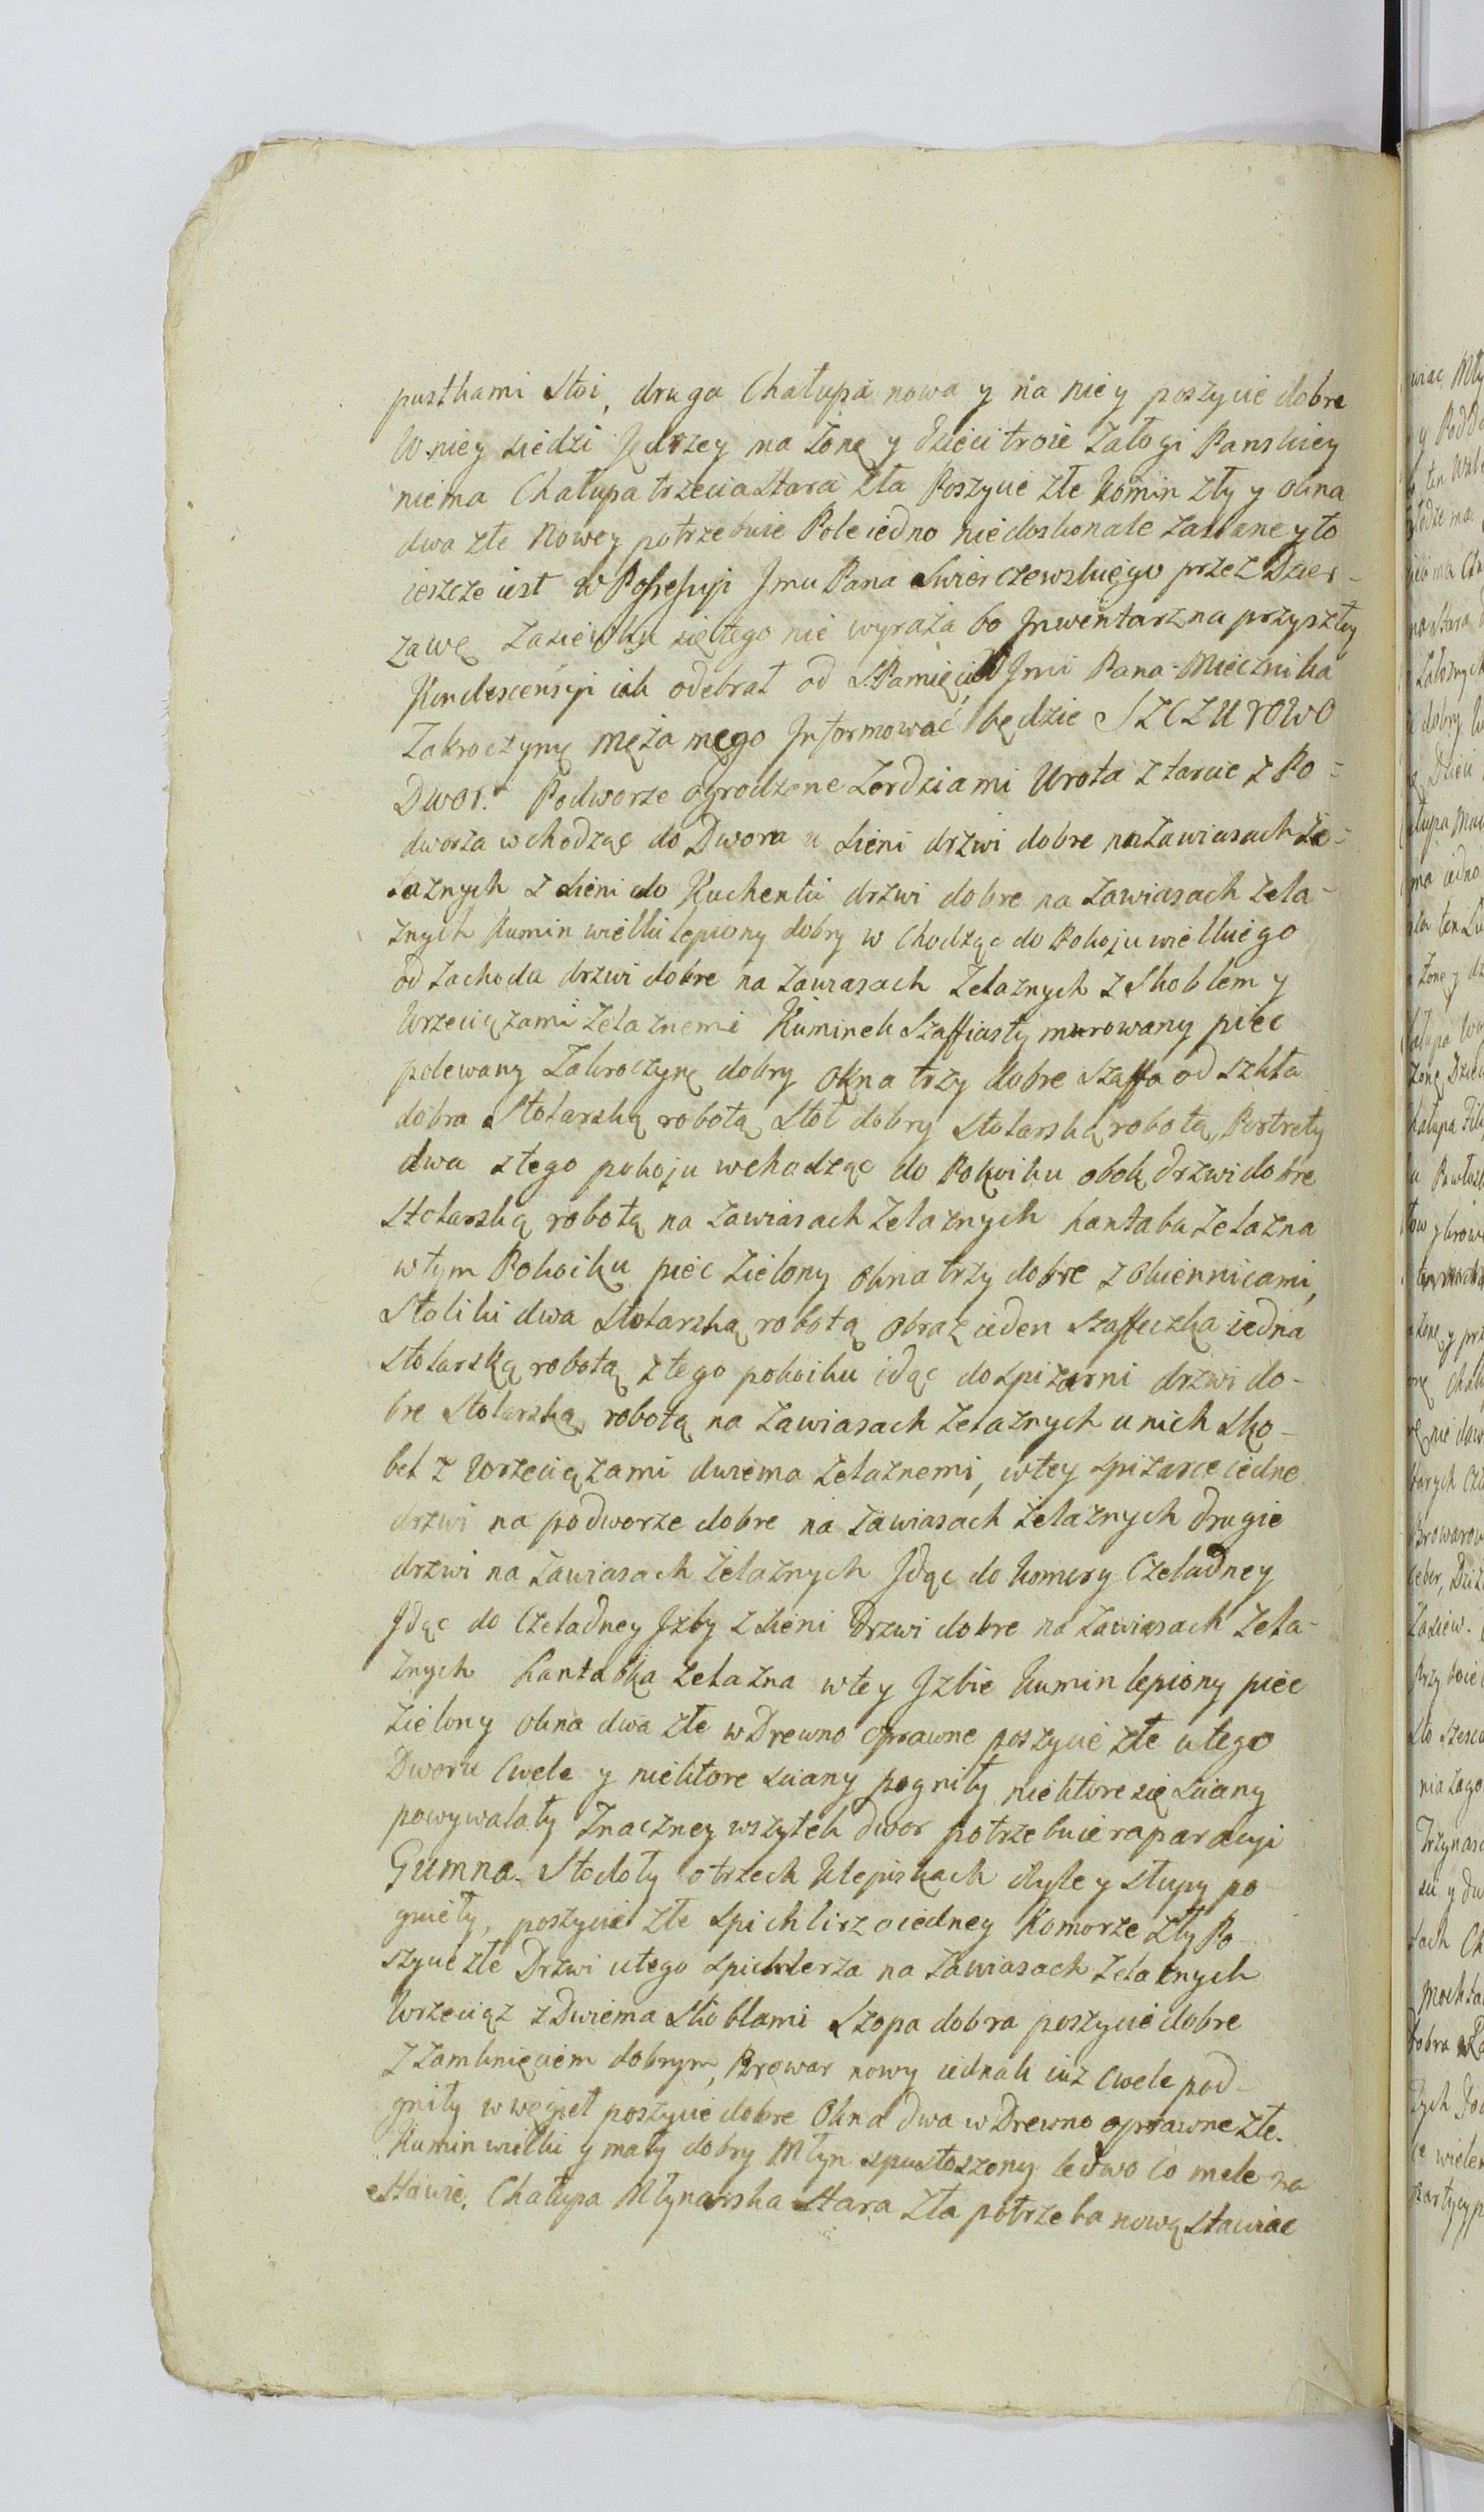 pustkami stoi, druga Chałupa nowa y na niey poszycie dobre
W niey siedzi Jędrzey ma żonę y dzieci troie Załogi Panskiey
niema Chałupa trzecia stara zła Poszycie złe Komin zły y okna
dwa złe Nowey potrzebuie Pole iedno niedoskonale zasiane y to
ieszcze iest w Possessyi Jmu Pana Swierczewskiego przez Dzier-
zawę Zasiewku się tego nie wyraża bo Jnwentarz na przyszłey
Kondescensyi iak odebrał od Jmi Pana Miecznika
Zakroczynę męża mego Jnformować będzie SZCZUROWO
Dwor. Podworze ogrodzone Zerdziami Wrota z tarcic z Po=
dworza wchodząc do Dwora u sieni drzwi dobre na Zawiasach że=
laznych z sieni do Kuchenki drzwi dobre na Zawiasach żela-
znych Kumin wielki lepiony dobry w chodząc do Pokoju wielkiego
od zachodu drzwi dobre na Zawiasach Zelaznych z Skoblem y
Wrzeciązami Zelaznemi Kuminek Szaffiasty murowany piec
polewany Zakroczynę dobry okna trzy dobre szaffa od szkła
dobra Stolarską robotą stoł dobry stolarską robotą, Portrety
dwa z tego pokoju wchodząc do Pokoiku obok drzwi dobre
stolarską robotą na zawiasach żelaznych hantaba żelazna
w tym Pokoiku piec zielony okna trzy dobre z okiennicami,
Stoliki dwa stolarską robotą obraz ieden szaffeczka iedna
stolarską robotą z tego pokoiku idąc do spizarni drzwi do-
bre stolarską robotą na zawiasach żelaznych u nich sko-
bel z wrzeciązami dwiema żelaznemi, w tey spizarce iedne
drzwi na podworze dobre na zawiasach żelaznych drugie
drzwi na zawiasach żelaznych Jdąc do komory Czeladney
Jdąc do Czeladney Jzby z sieni Drzwi dobre na zawiasach żela-
znych hantabka żelazna w tey Jzbie Kumin lepiony piec
zielony okna dwa złe w Drewno oprawne poszycie złe u tego
Dworu Cwele y niektore sciany pogniły niektore się sciany
powywalały Znaczney wszytek dwor potrzebuie raparacyi
Gumna. Stodoły o trzech klepiskach dyle y słupy po-
gnieły, poszycie złe spichlirz o iedney Komorze zły Po-
szycie złe Drzwi u tego spichlerza na zawiasach żelaznych
Wrzeciąz z Dwiema skoblami szopa dobra poszycie dobre
z zamknięciem dobrym, Browar nowy iednak iuż Cwele pod-
gniły w węgieł poszycie dobre Okna dwa w Drewno oprawne złe.
Kumin wielki y mały dobry Młyn spustoszony ledwo co mele na
stawie. Chałupa Młynarska stara zła potrzeba nową stawiac